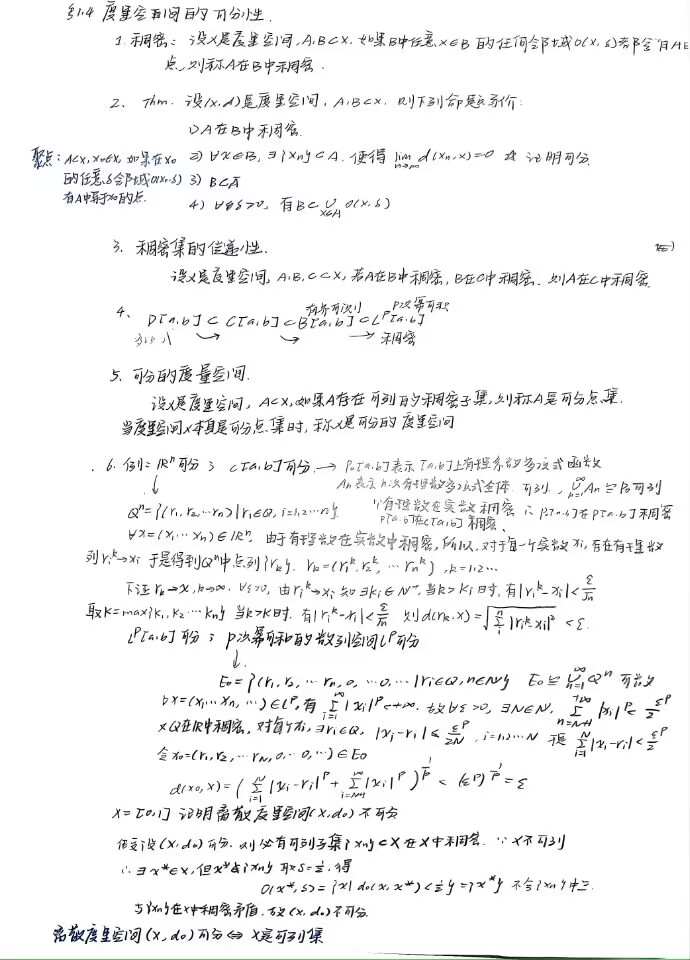 §1.4 度量空间的可分性.
1. 稠密: 设X是度量空间, A,B⊂X. 如果B中任意 x∈B 的任何邻域O(x, δ)都含有A中
点, 则称A在B中稠密.
2. Thm. 设(X,d)是度量空间, A,B⊂X. 则下列命题等价:
1) A在B中稠密.
聚点: A⊂X, x₀∈X, 如果在x₀
的任意δ邻域O(x₀,δ)
有A中异于x₀的点.
2) ∀x∈B, ∃{xn}⊂A. 使得 lim n→∞ d(xn, x)=0 证明可分.
3) B⊂A̅
4) ∀δ>0, 有 B⊂ ∪ x∈A O(x,δ)
3. 稠密集的传递性.
设X是度量空间, A,B,C⊂X, 若A在B中稠密, B在C中稠密. 则A在C中稠密.
4、
有界可测 P次幂可积
P[a,b] ⊂ C[a,b] ⊂ B[a,b] ⊂ Lᵖ[a,b]
稠密
5. 可分的度量空间.
设X是度量空间, A⊂X, 如果A存在可列的稠密子集, 则称A是可分点集.
当度量空间X本身是可分点集时, 称X是可分的度量空间
6. 例: ℝⁿ可分; C[a,b]可分. → P₀[a,b]表示[a,b]上有理系数多项式函数
An表示n次有理数多项式全体. 可列, ∪ n=1 ∞ An = P₀可列
Qⁿ={(r₁, r₂, ⋯ rn) | ri∈Q, i=1,2⋯n} ∵有理数在实数稠密 ∴P₀[a,b]在P[a,b]稠密
P[a,b]在C[a,b]稠密.
∀x=(x₁, ⋯ xn)∈ℝⁿ. 由于有理数在实数中稠密, 所以, 对于每一个实数xi, 存在有理数
列 riᵏ→xi 于是得到Qⁿ中点列{rk}. rk=(r₁ᵏ, r₂ᵏ, ⋯ rnᵏ), k=1,2⋯
下证 rk→x, k→∞. ∀ε>0, 由 riᵏ→xi 知 ∃Ki∈N⁺, 当k>Ki时, 有|riᵏ-xi|<ε/√n
取K=max{K₁, K₂ ⋯ Kn} 当k>K时. 有|riᵏ-xi|<ε/√n 则 d(rk, x)=√(Σ i=1 n |riᵏ-xi|²) <ε.
Lᵖ[a,b]可分; p次幂可和的数列空间lᵖ可分
E₀={(r₁, r₂, ⋯ rn, 0, ⋯0,⋯) | ri∈Q, n∈N} E₀=∪ n=1 ∞ Qⁿ 可数
∀x=(x₁⋯xn, ⋯)∈lᵖ, 有 Σ i=1 ∞ |xi|ᵖ<+∞. 故∀ε>0, ∃N∈N, Σ n=N+1 +∞ |xi|ᵖ<εᵖ/2
又Q在ℝ中稠密, 对每个xi, ∃ri∈Q, |xi-ri|ᵖ≤εᵖ/2N, i=1,2⋯N 于是 Σ i=1 N |xi-ri|ᵖ<εᵖ/2
令x₀=(r₁, r₂, ⋯ rN, 0, ⋯ 0, ⋯)∈E₀
d(x₀, x)=(Σ i=1 N |xi-ri|ᵖ + Σ i=N+1 ∞ |xi|ᵖ)^(1/p) < (εᵖ)^(1/p)=ε
X=[0,1] 证明离散度量空间(X,d₀)不可分
假设(X,d₀)可分. 则必有可列子集{xn}⊂X在X中稠密. ∵X不可列
∴∃x*∈X, 但x*∉{xn} 取δ=½, 得
O(x*, δ)={x| d₀(x, x*)<½}={x*} 不含{xn}中点.
与{xn}在X中稠密矛盾. 故(X,d₀)不可分.
离散度量空间(X,d₀)可分⇔X是可列集